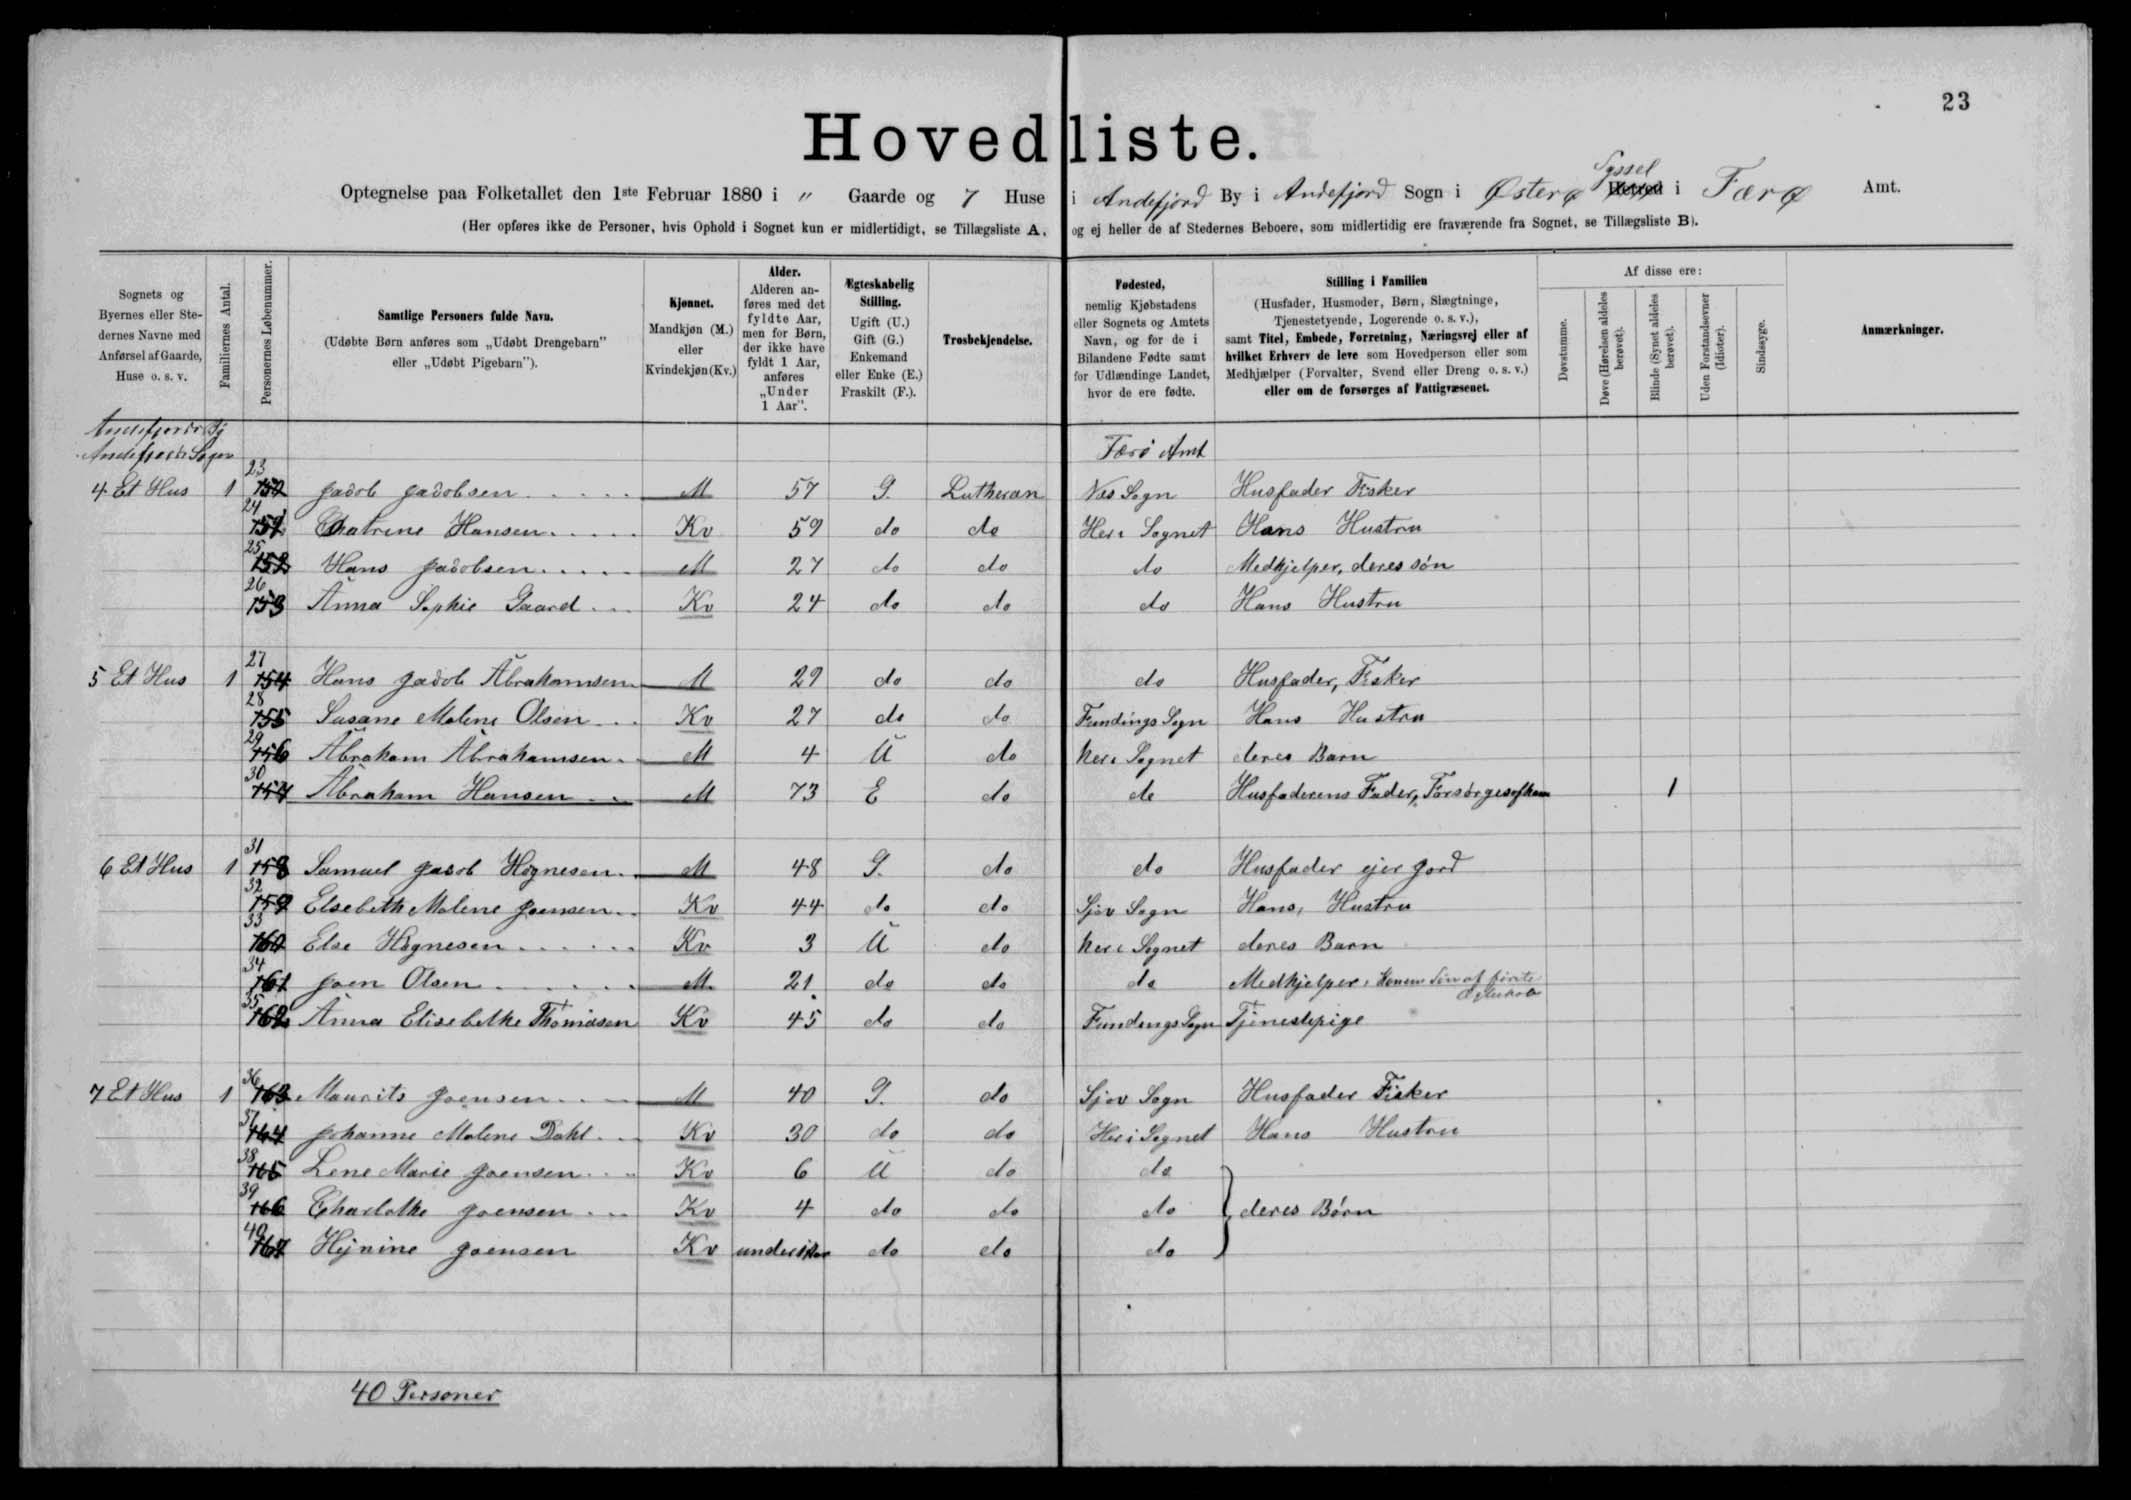 23
Hovedliste.
Optegnelse paa Folketallet den 1ste Februar 1880 i " Gaarde og 7 Huse i Andefjord By i Andefjord Sogn i Østerø Syssel Herred i Færø Amt.
(Her opføres ikke de Personer, hvis Ophold i Sognet kun er midlertidigt, se Tillægsliste A, og ej heller de af Stedernes Beboere, som midlertidig ere fraværende fra Sognet, se Tillægsliste B).
Sognets og Byernes eller Stedernes Navne med Anførsel af Gaarde, Huse o. s. v.
Familiernes Antal.
Personernes Løbenummer.
Samtlige Personers fulde Navn.
(Udøbte Børn anføres som „Udøbt Drengebarn" eller „Udøbt Pigebarn").
Kjønnet.
Mandkjøn (M.) eller Kvindekjøn (Kv.)
Alder.
Alderen anføres med det fyldte Aar, men for Børn, der ikke have fyldt 1 Aar, anføres „Under 1 Aar".
Ægteskabelig Stilling.
Ugift (U.) Gift (G.) Enkemand eller Enke (E.) Fraskilt (F.).
Trosbekjendelse.
Fødested,
nemlig Kjøbstadens eller Sognets og Amtets Navn, og for de i Bilandene Fødte samt for Udlændinge Landet, hvor de ere fødte.
Stilling i Familien
(Husfader, Husmoder, Børn, Slægtninge, Tjenestetyende, Logerende o. s. v.), samt Titel, Embede, Forretning, Næringsvej eller af hvilket Erhverv de leve som Hovedperson eller som Medhjælper (Forvalter, Svend eller Dreng o. s. v.) eller om de forsørges af Fattigvæsenet.
Af disse ere:
Døvstumme.
Døve (Hørelsen aldeles berøvet).
Blinde (Synet aldeles berøvet).
Uden Forstandsevner (Idioter).
Sindssyge.
Anmærkninger.
Andefjords By
Andefjords Sogn Færø Amt
4 Et Hus 1 23 150 Jacob Jacobsen M 57 G. Lutheran Næs Sogn Husfader Fisker
24 151 Chatrine Hansen Kv 59 do do Her i Sognet Hans Hustru
25 152 Hans Jacobsen M 27 do do do Medhjelper, deres søn
26 153 Anna Sophie Gaard Kv 24 do do do Hans Hustru
5 Et Hus 1 27 154 Hans Jacob Abrahamsen M 29 do do do Husfader, Fisker
28 155 Susane Malene Olsen Kv 27 do do Fundings Sogn Hans Hustru
29 156 Abraham Abrahamsen M 4 U do her i Sognet deres Barn
30 157 Abraham Hansen M 73 E do do Husfaderens Fader, Forsørges af ham 1
6 Et Hus 1 31 158 Samuel Jacob Høgnesen M 48 G. do do Husfader ejer jord
32 159 Elsebeth Malene Joensen Kv 44 do do Sjov Sogn Hans, Hustru
33 160 Else Høgnesen Kv 3 U do her i Sognet deres Barn
34 161 Joen Olsen M 21 do do do Medhjelper, Konens Søn af første Ægteskab
35 162 Anna Elisebethe Thomasen Kv 45 do do Fundings Sogn Tjenestepige
7 Et Hus 1 36 163 Maurits Joensen M 40 G. do Sjov Sogn Husfader Fisker
37 164 Johanne Malene Dahl Kv 30 do do Her i Sognet Hans Hustru
38 165 Lene Marie Joensen Kv 6 U do do
39 166 Charlothe Joensen Kv 4 do do do deres Børn
40 167 Hejnine Joensen Kv under 1 Aar do do do
40 Personer